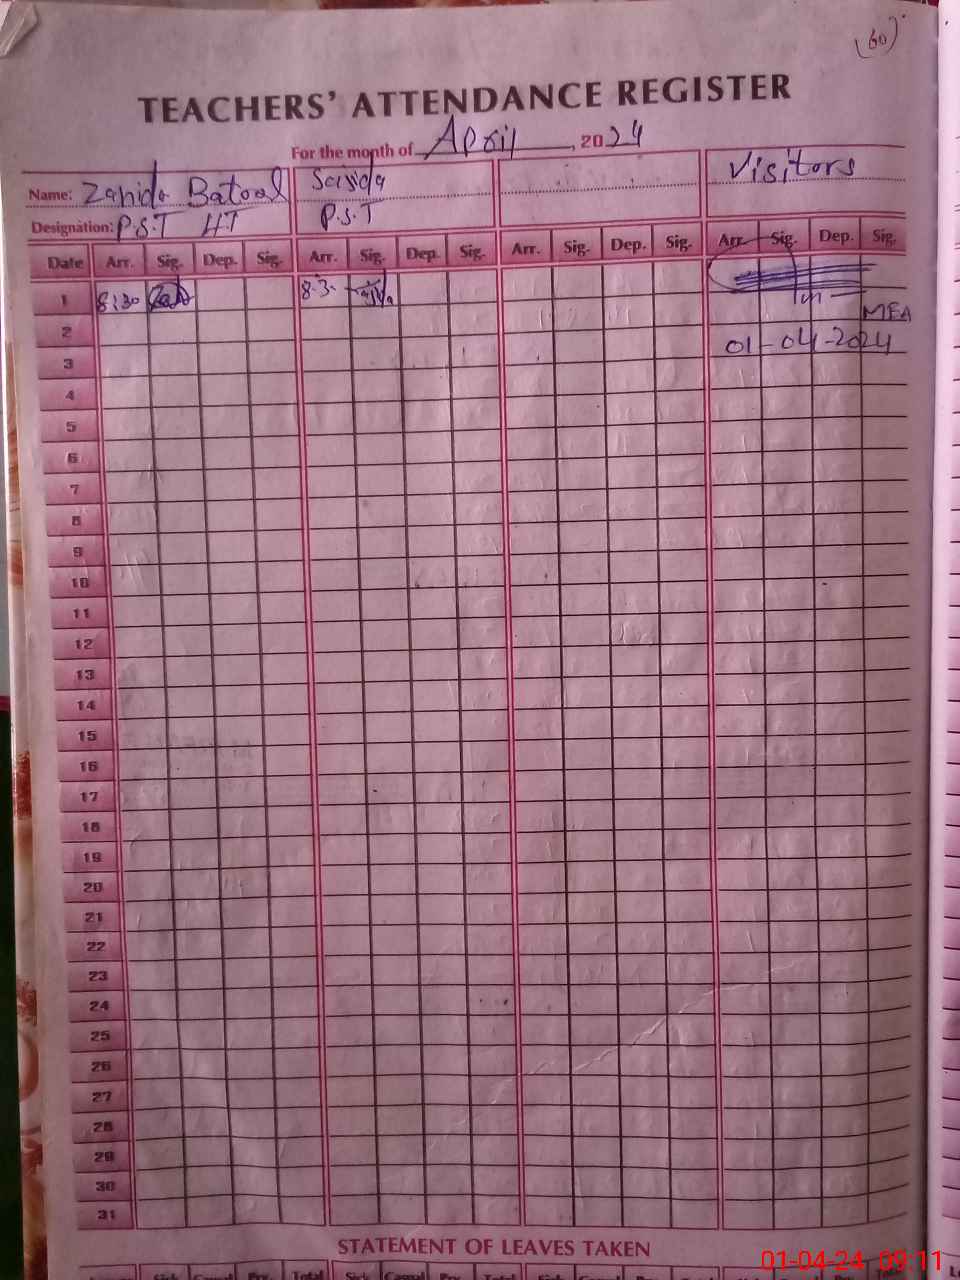 (60)
TEACHERS' ATTENDANCE REGISTER
For the month of April, 2024
Name: Zahida Batool Sajida Visitors
Designation: P.S.T HT P.S.T
Date Arr. Sig. Dep. Sig. Arr. Sig. Dep. Sig. Arr. Sig. Dep. Sig. Arr. Sig. Dep. Sig.
1 8:30 8:3
MEA
2
01-04-2024
3
4
5
6
7
8
9
10
11
12
13
14
15
16
17
18
19
20
21
22
23
24
25
26
27
28
29
30
31
STATEMENT OF LEAVES TAKEN
Sick Casual Prv. Total Sick Casual Prv. Total Sick Casual Prv. Total Sick Casual
01-04-24 09:11